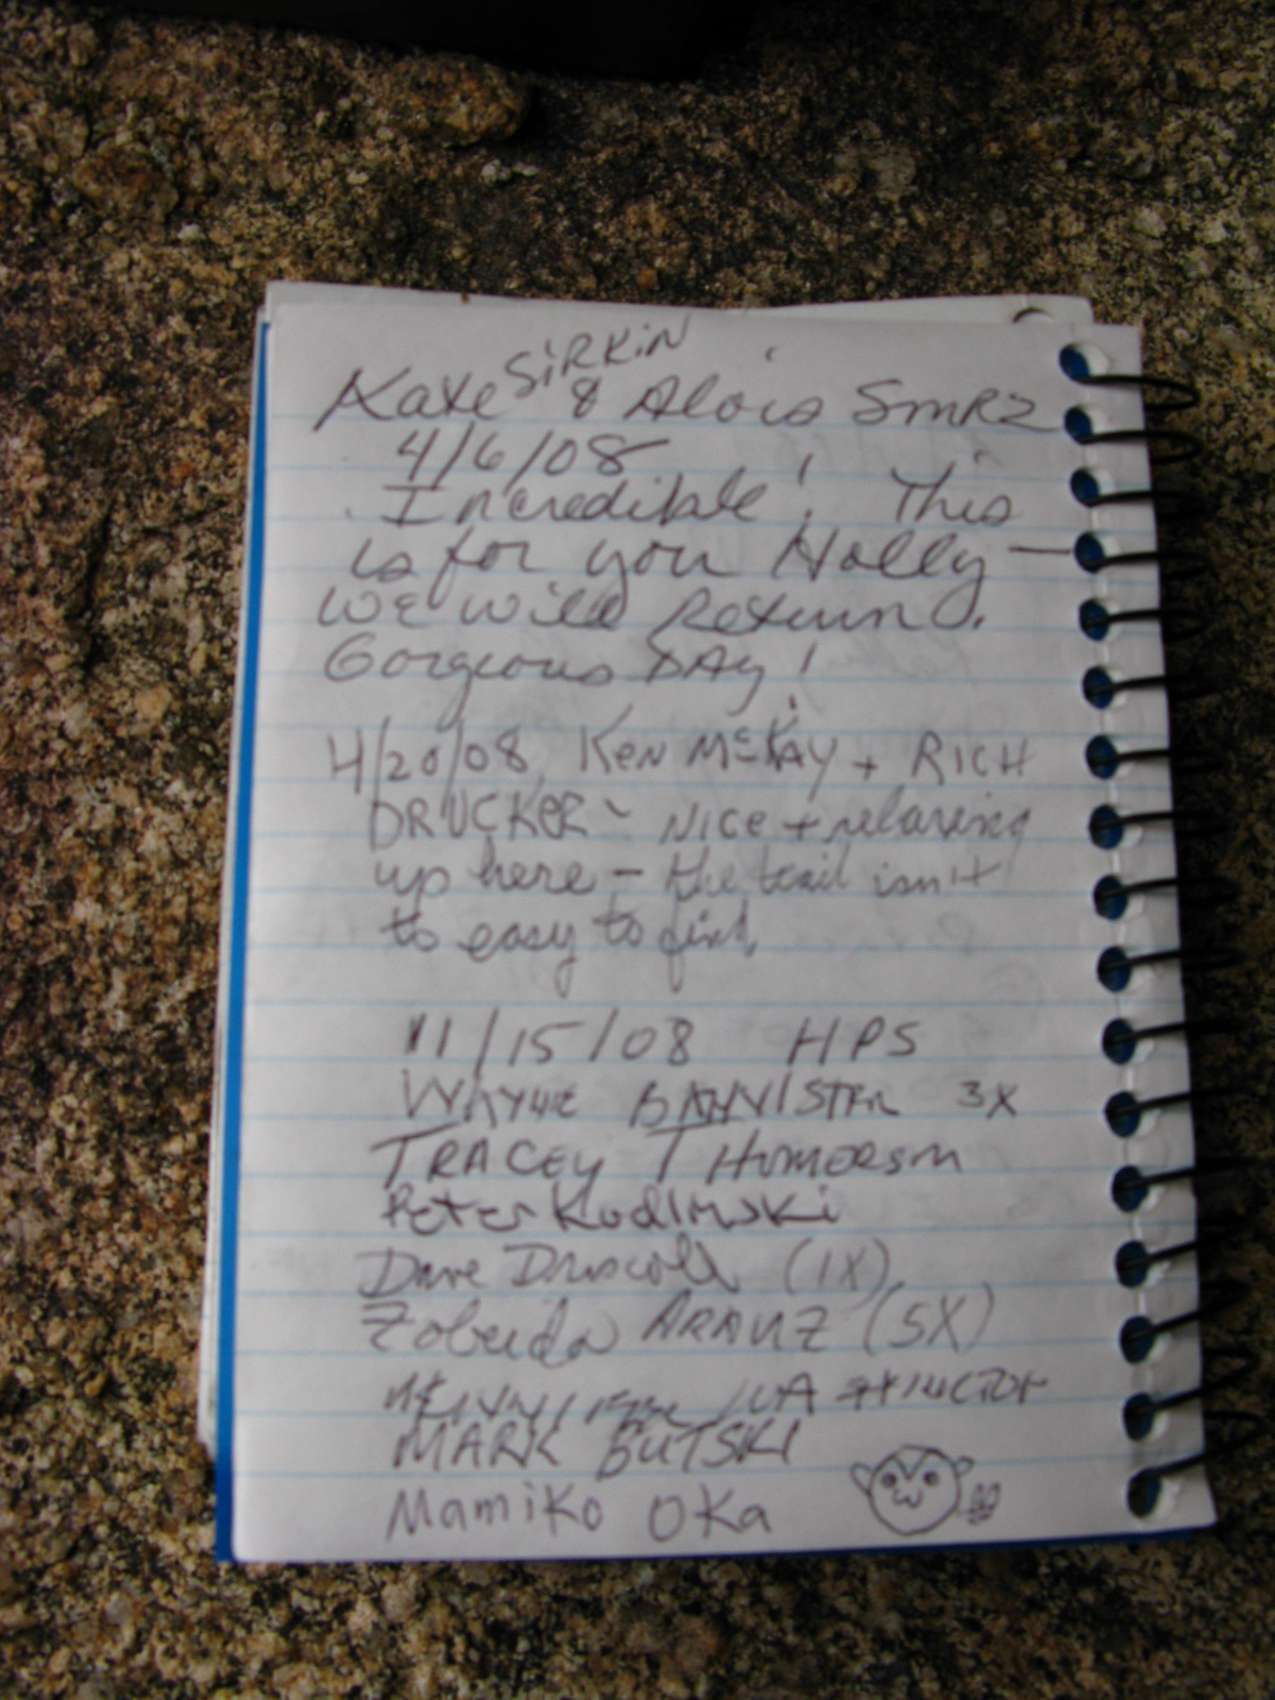 Kate SiRKiN & Alois SmRZ
4/6/08
Incredible! This
is for you Holly —
we will Return.
Gorgeous DAy!
4/20/08, Ken McKAY + RICH
DRUCKER - NICE + relaxing
up here - the trail isn't
to easy to find,
11/15/08 HPS
WAYNE BANNISTER 3X
TRACEY THOMERSON
Peter Kudlinski
Dave Driscoll (1X)
Zobeida ARAUZ (5X)
MARK BUTSKI
Mamiko OKa